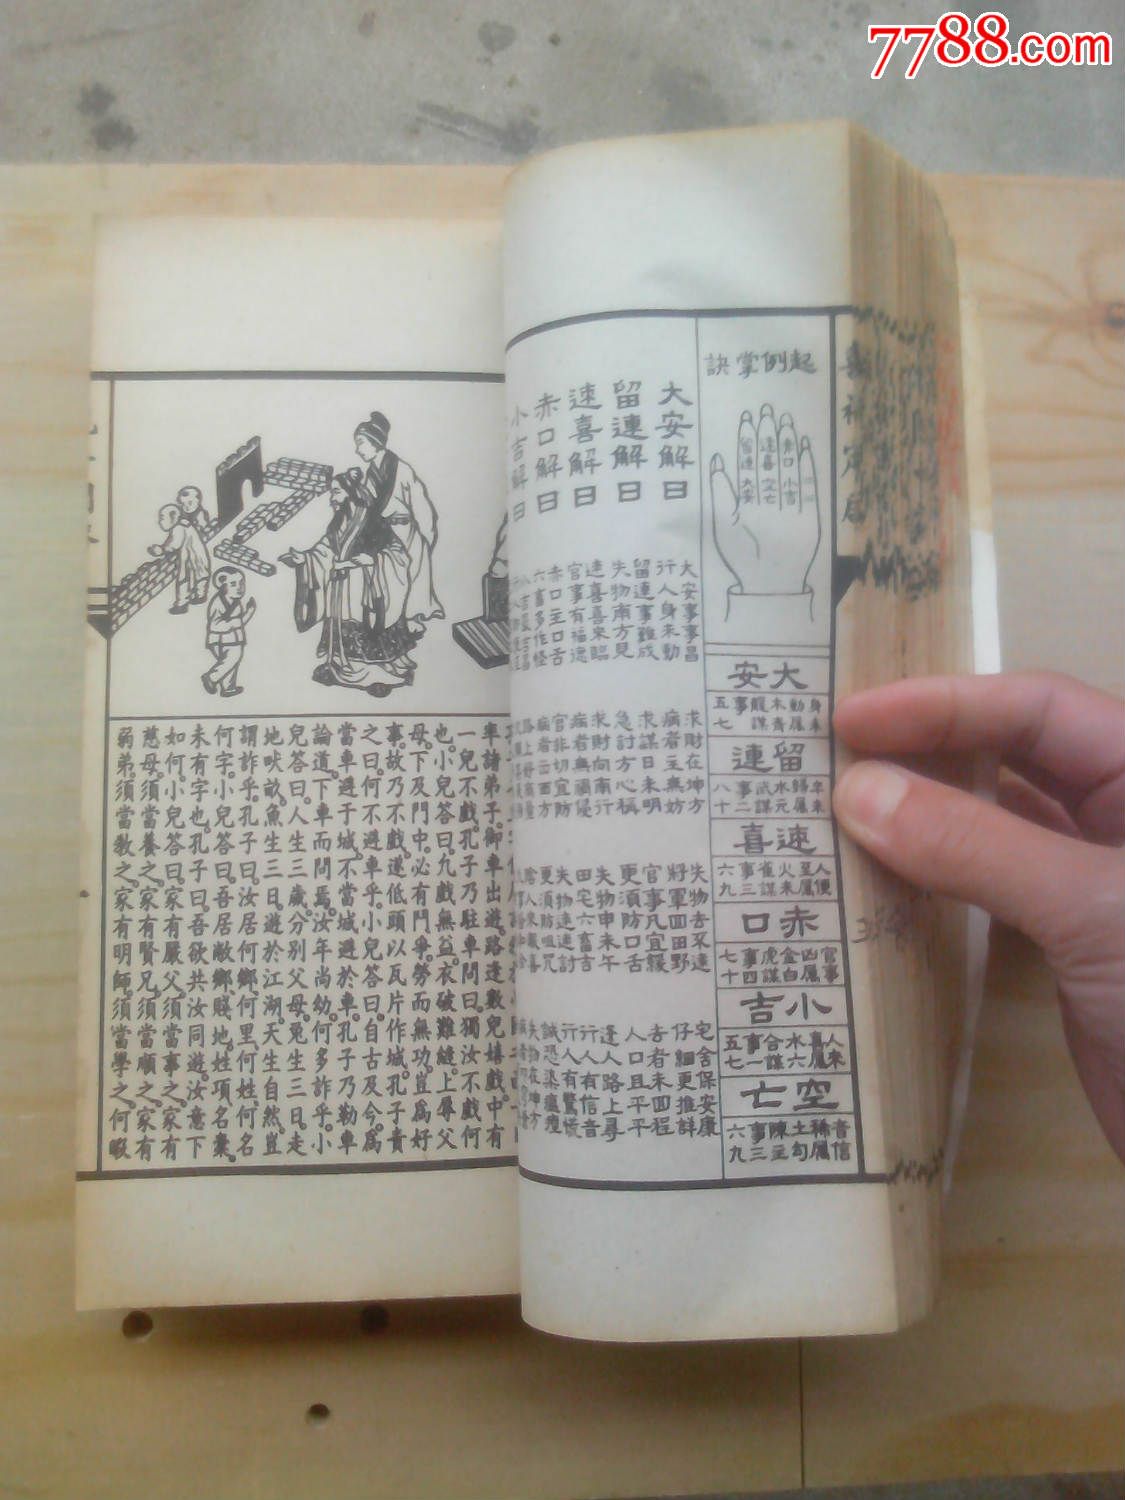 7788.com
起例掌訣
赤口 小吉
速喜 空亡
留連 大安
大安
身未動屬木青龍謀事五七
留連
卒未歸屬水元武謀事二八十
速喜
人便至屬火朱雀謀事三六九
赤口
官事凶屬金白虎謀事四七十
小吉
人來喜屬水六合謀事一五七
空亡
音信稀屬土勾陳主事三六九
大安解曰
大安事事昌
求財在坤方
失物去不遠
宅舍保安康
行人身未動
病者主無妨
將軍回田野
仔細更推詳
留連解曰
留連事難成
求謀日未明
官事凡宜緩
去者未回程
失物南方見
急討方心稱
更須防口舌
人口且平平
速喜解曰
速喜喜來臨
求財向南行
失物申未午
逢人路上尋
官事有福德
病者無禍侵
田宅六畜吉
行人有信音
赤口解曰
赤口主口舌
官非切宜防
失物速速討
行人有驚慌
六畜多作怪
病者出西方
更須防咀咒
誠恐染瘟瘟
小吉解曰
率諸弟子御車出遊路逢數兒嬉戲中有
一兒不戲孔子乃駐車問曰獨汝不戲何
也小兒答曰凡戲無益衣破難縫上辱父
母下及門中必有鬥爭勞而無功豈爲好
事故乃不戲遂低頭以瓦片作城孔子責
之曰何不避車乎小兒答曰自古及今爲
當車避于城不當城避於車孔子乃勒車
論道下車而問焉汝年尚幼何多詐乎小
兒答曰人生三歲分別父母兔生三日走
地畎畝魚生三日遊於江湖天生自然豈
謂詐乎孔子曰汝居何鄉何里何姓何名
何字小兒答曰吾居敝鄉賤地姓項名橐
未有字也孔子曰吾欲共汝同遊汝意下
如何小兒答曰家有嚴父須當事之家有
慈母須當養之家有賢兄須當順之家有
弱弟須當教之家有明師須當學之何暇